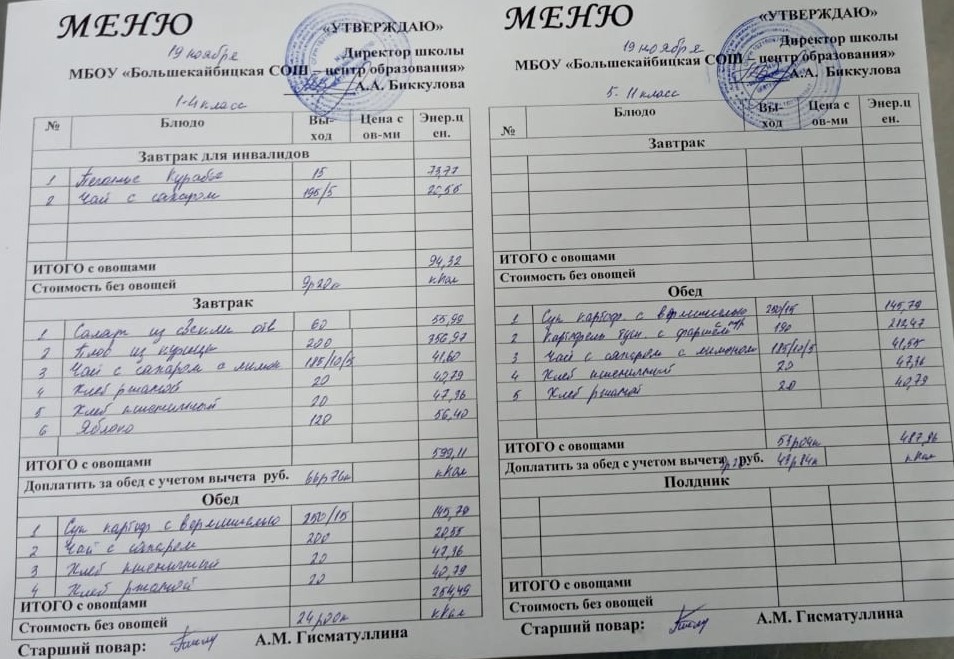 МЕНЮ
«УТВЕРЖДАЮ»
19 ноября
Директор школы
МБОУ «Большекайбицкая СОШ – центр образования»
А.А. Биккулова
1-4 класс
№ Блюдо Вы-ход Цена с ов-ми Энер.ц ен.
Завтрак для инвалидов
1 Печенье Курабье 15 73,77
2 Чай с сахаром 195/5
ИТОГО с овощами 94,32
Стоимость без овощей 9р20к кКал
Завтрак
1 Салат из 60 55,99
2 Плов из курицы 200 356,97
3 Чай с сахаром с лимон 185/10/5 41,60
4 Хлеб ржаной 20 40,79
5 Хлеб пшеничный 20 47,36
6 Яблоко 120 56,40
ИТОГО с овощами 599,11
Доплатить за обед с учетом вычета руб. 66р76к кКал
Обед
1 Суп картоф с вермишелью 250/15 145,79
2 Чай с сахаром 200 20,55
3 Хлеб пшеничный 20 47,36
4 Хлеб ржаной 20 40,79
ИТОГО с овощами 254,49
Стоимость без овощей 24р00к кКал
Старший повар: А.М. Гисматуллина
МЕНЮ
«УТВЕРЖДАЮ»
19 ноября
Директор школы
МБОУ «Большекайбицкая СОШ – центр образования»
А.А. Биккулова
5-11 класс
№ Блюдо Вы-ход Цена с ов-ми Энер.ц ен.
Завтрак
ИТОГО с овощами
Стоимость без овощей
Обед
1 Суп картоф. с вермишелью 250/15 145,79
2 Картофель туш. с фаршем 190 212,47
3 Чай с сахаром с лимоном 185/10/5 41,55
4 Хлеб пшеничный 20 47,36
5 Хлеб ржаной 20 40,79
ИТОГО с овощами 53р04к 487,96
Доплатить за обед с учетом вычета руб. 43р84к кКал
Полдник
ИТОГО с овощами
Стоимость без овощей
Старший повар: А.М. Гисматуллина